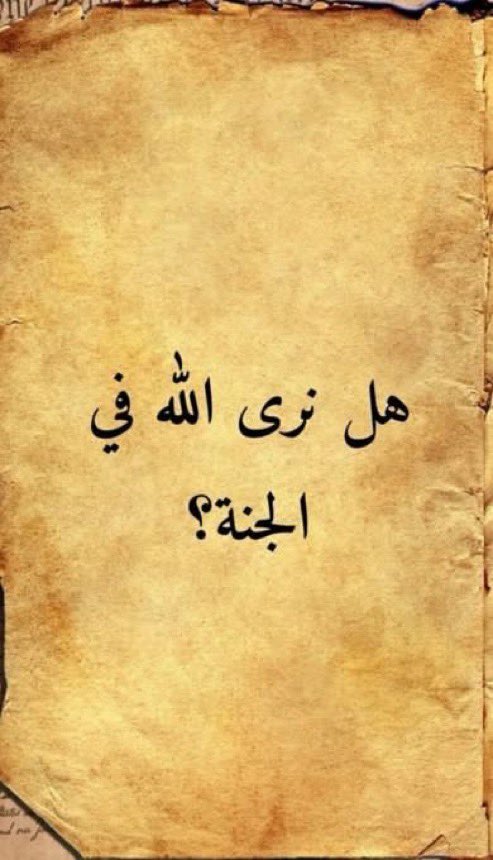 هل نرى الله في
الجنة؟